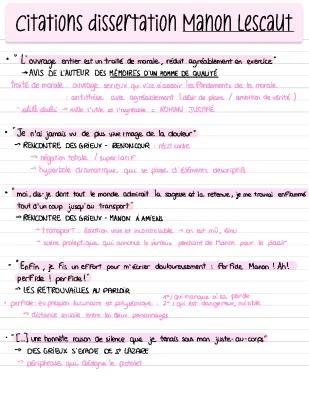 Citations dissertation Manon Lescaut
• "L'ouvrage entier est un traité de morale, réduit agréablement en exercice"
→ AVIS DE L'AUTEUR DES MÉMOIRES D'UN HOMME DE QUALITÉ
traité de morale : ouvrage sérieux qui vise à asseoir les fondements de la morale
: antithèse avec agréablement (désir de plaire / ambition de vérité)
→ mêle l'utile et l'agréable = ROMAN JUSTIFIÉ
• "Je n'ai jamais vu de plus vive image de la douleur"
→ RENCONTRE DES GRIEUX - RENONCOUR : récit cadre
→ négation totale / superlatif
→ hyperbole dramatique qui se passe d'éléments descriptifs
• "moi, dis-je, dont tout le monde admirait la sagesse et la retenue, je me trouvai enflammé
tout d'un coup jusqu'au transport"
→ RENCONTRE DES GRIEUX - MANON À AMIENS
→ transport : émotion vive et incontrôlable → on est mû, ému
→ scène proleptique qui annonce le penchant de Manon pour le plaisir
• "Enfin, je fis un effort pour m'écrier douloureusement : Perfide Manon ! Ah!
perfide ! perfide!"
→ LES RETROUVAILLES AU PARLOIR
1°/ qui manque à sa parole
• perfide : expression lacunaire et polysémique : 2°/ qui est dangereux, nuisible
→ distance sociale entre les deux personnages
• "[...] une honnête raison de silence que je tenais sous mon juste-au-corps"
→ DES GRIEUX S'ÉVADE DE ST LAZARE
→ périphrase qui désigne le pistolet